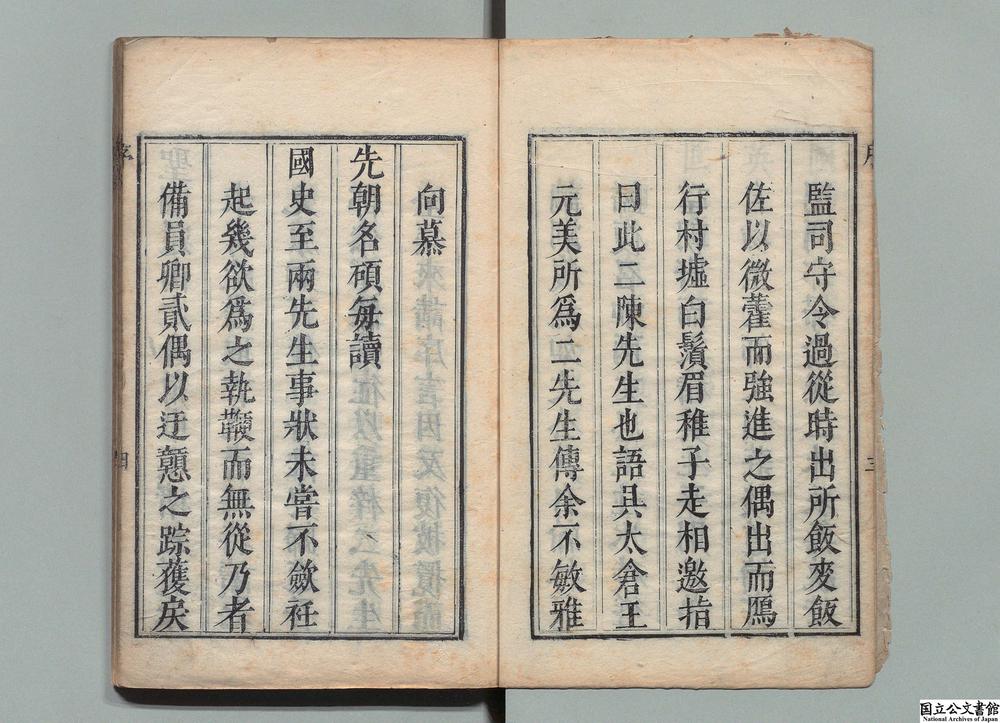 監司守令過從時出所飯麥飯
佐以微藿而強進之偶出而鴈
行村墟白鬚眉稚子走相邀指
曰此二陳先生也語具太倉王
元美所為二先生傳余不敏雅
向慕
先朝名碩每讀
國史至兩先生事狀未嘗不斂衽
起幾欲爲之執鞭而無從乃者
備員卿貳偶以迂戇之踪蒦戾
序
四
三
国立公文書館
National Archives of Japan